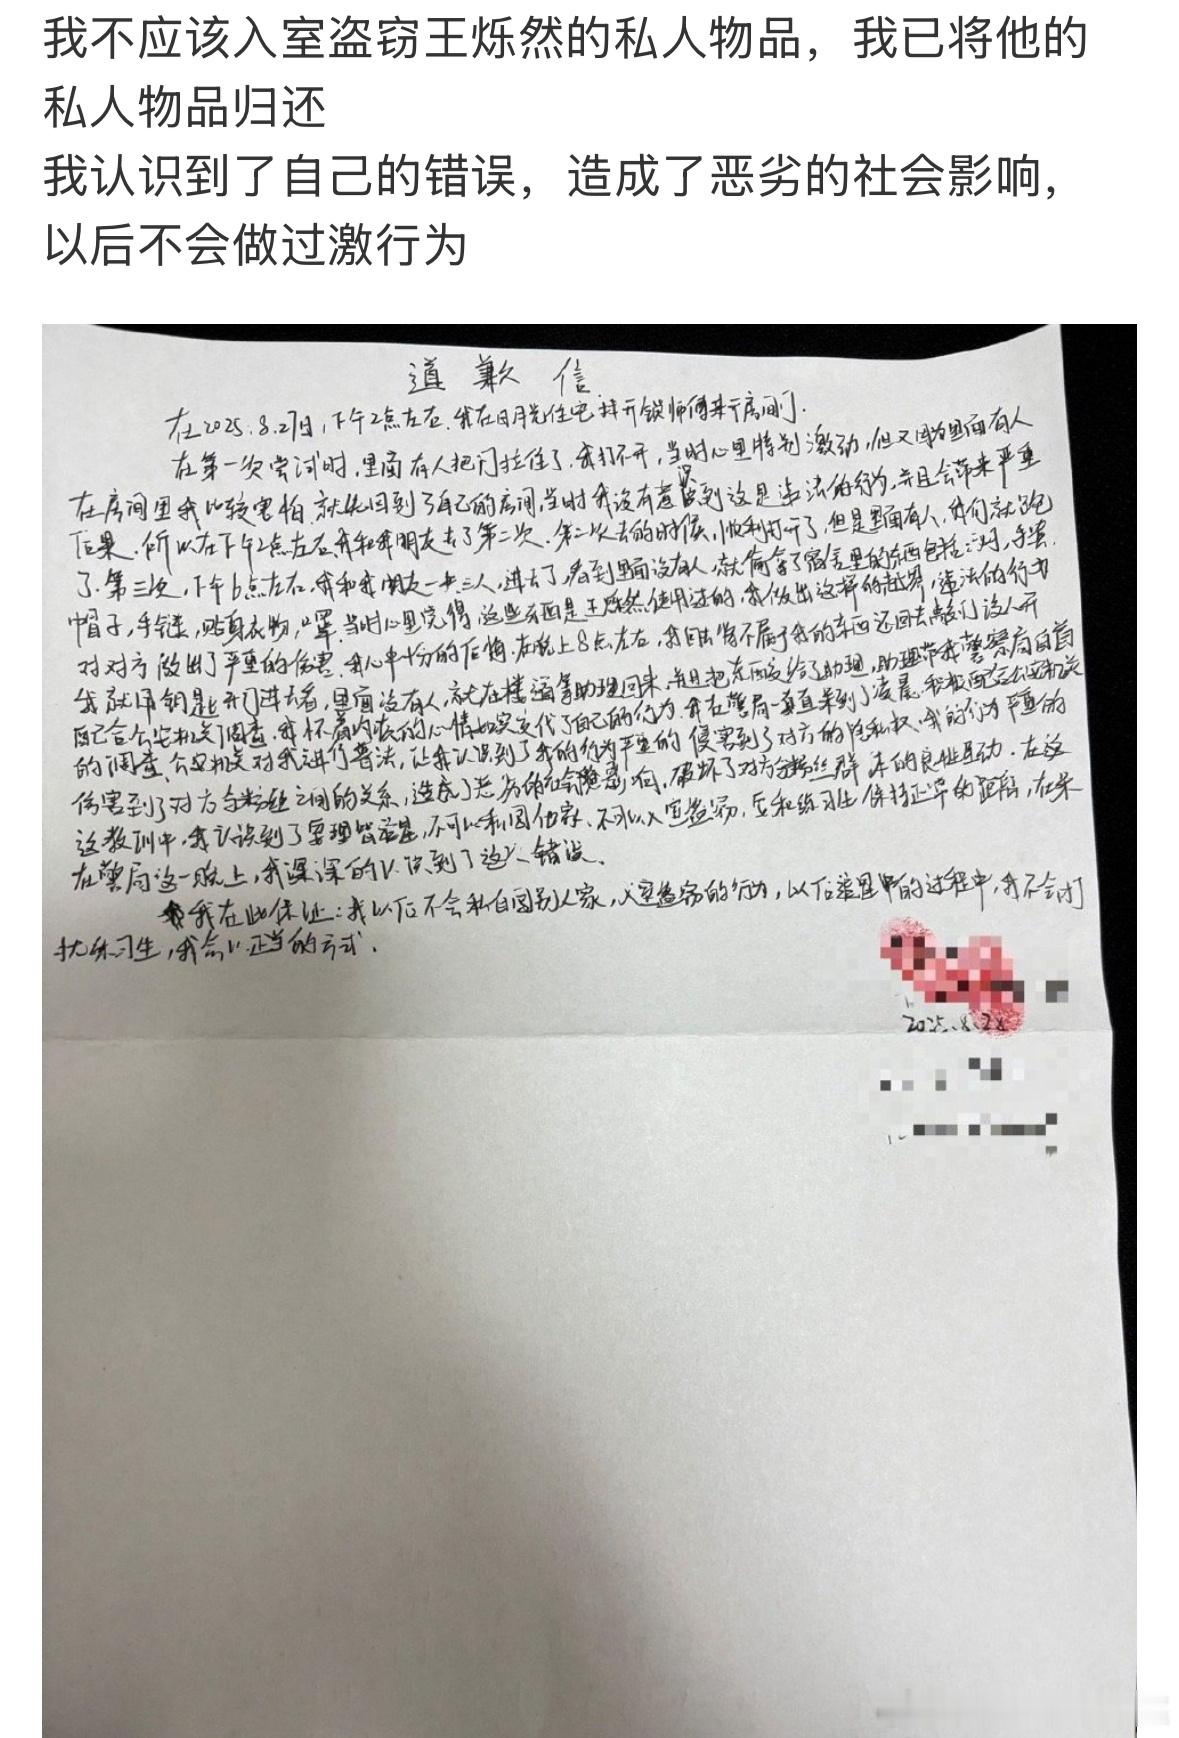 我不应该入室盗窃王烁然的私人物品，我已将他的
私人物品归还
我认识到了自己的错误，造成了恶劣的社会影响，
以后不会做过激行为
道歉信
在2025.8.27日，下午2点左右，我在日月光住宅找开锁师傅来开房间门.
在第一次尝试时，里面有人把门拉住了，我打不开，当时心里特别激动，但又因为里面有人
在房间里我比较害怕，就先回到了自己的房间，当时我没有意识到这是违法的行为，并且会带来严重
后果.所以在下午2点左右我和我朋友去了第二次.第二次去的时候，顺利打开了，但是里面有人，我们就跑
了.第三次，下午6点左右，我和我朋友一共三人，进去了，看到里面没有人，就偷拿了宿舍里的东西包括:
帽子，手链，贴身衣物，口罩.当时心里觉得，这些东西是王烁然使用过的，我做出这样的越界，违法的行为
对对方做出了严重的伤害.我心中十分的后悔.在晚上8点左右，我回去将不属于我的东西还回去敲门没人开
我就用钥匙开门进去看，里面没有人，就在楼道等助理回来，并且把东西交给了助理，助理带我警察局自首
配合公安机关调查，我怀着内疚的心情如实交代了自己的行为.我在警局一直呆到了凌晨.积极配合公安机关
的调查，公安机关对我进行普法，让我认识到了我的行为严重的侵害到了对方的隐私权，我的行为严重的
伤害到了对方与粉丝之间的关系，造成了恶劣的社会影响，破坏了对方与粉丝群体的良性互动.在这
这教训中，我认识到了要理智追星，不可以私闯他家，不可以入室盗窃，要和练习生保持正常的距离，在来
在警局这一晚上，我深深的认识到了这个错误.
我在此保证：我以后不会私自闯别人家，入室盗窃的行为，以后追星中的过程中，我不会打
扰练习生，我会以正当的方式.
2025.8.28